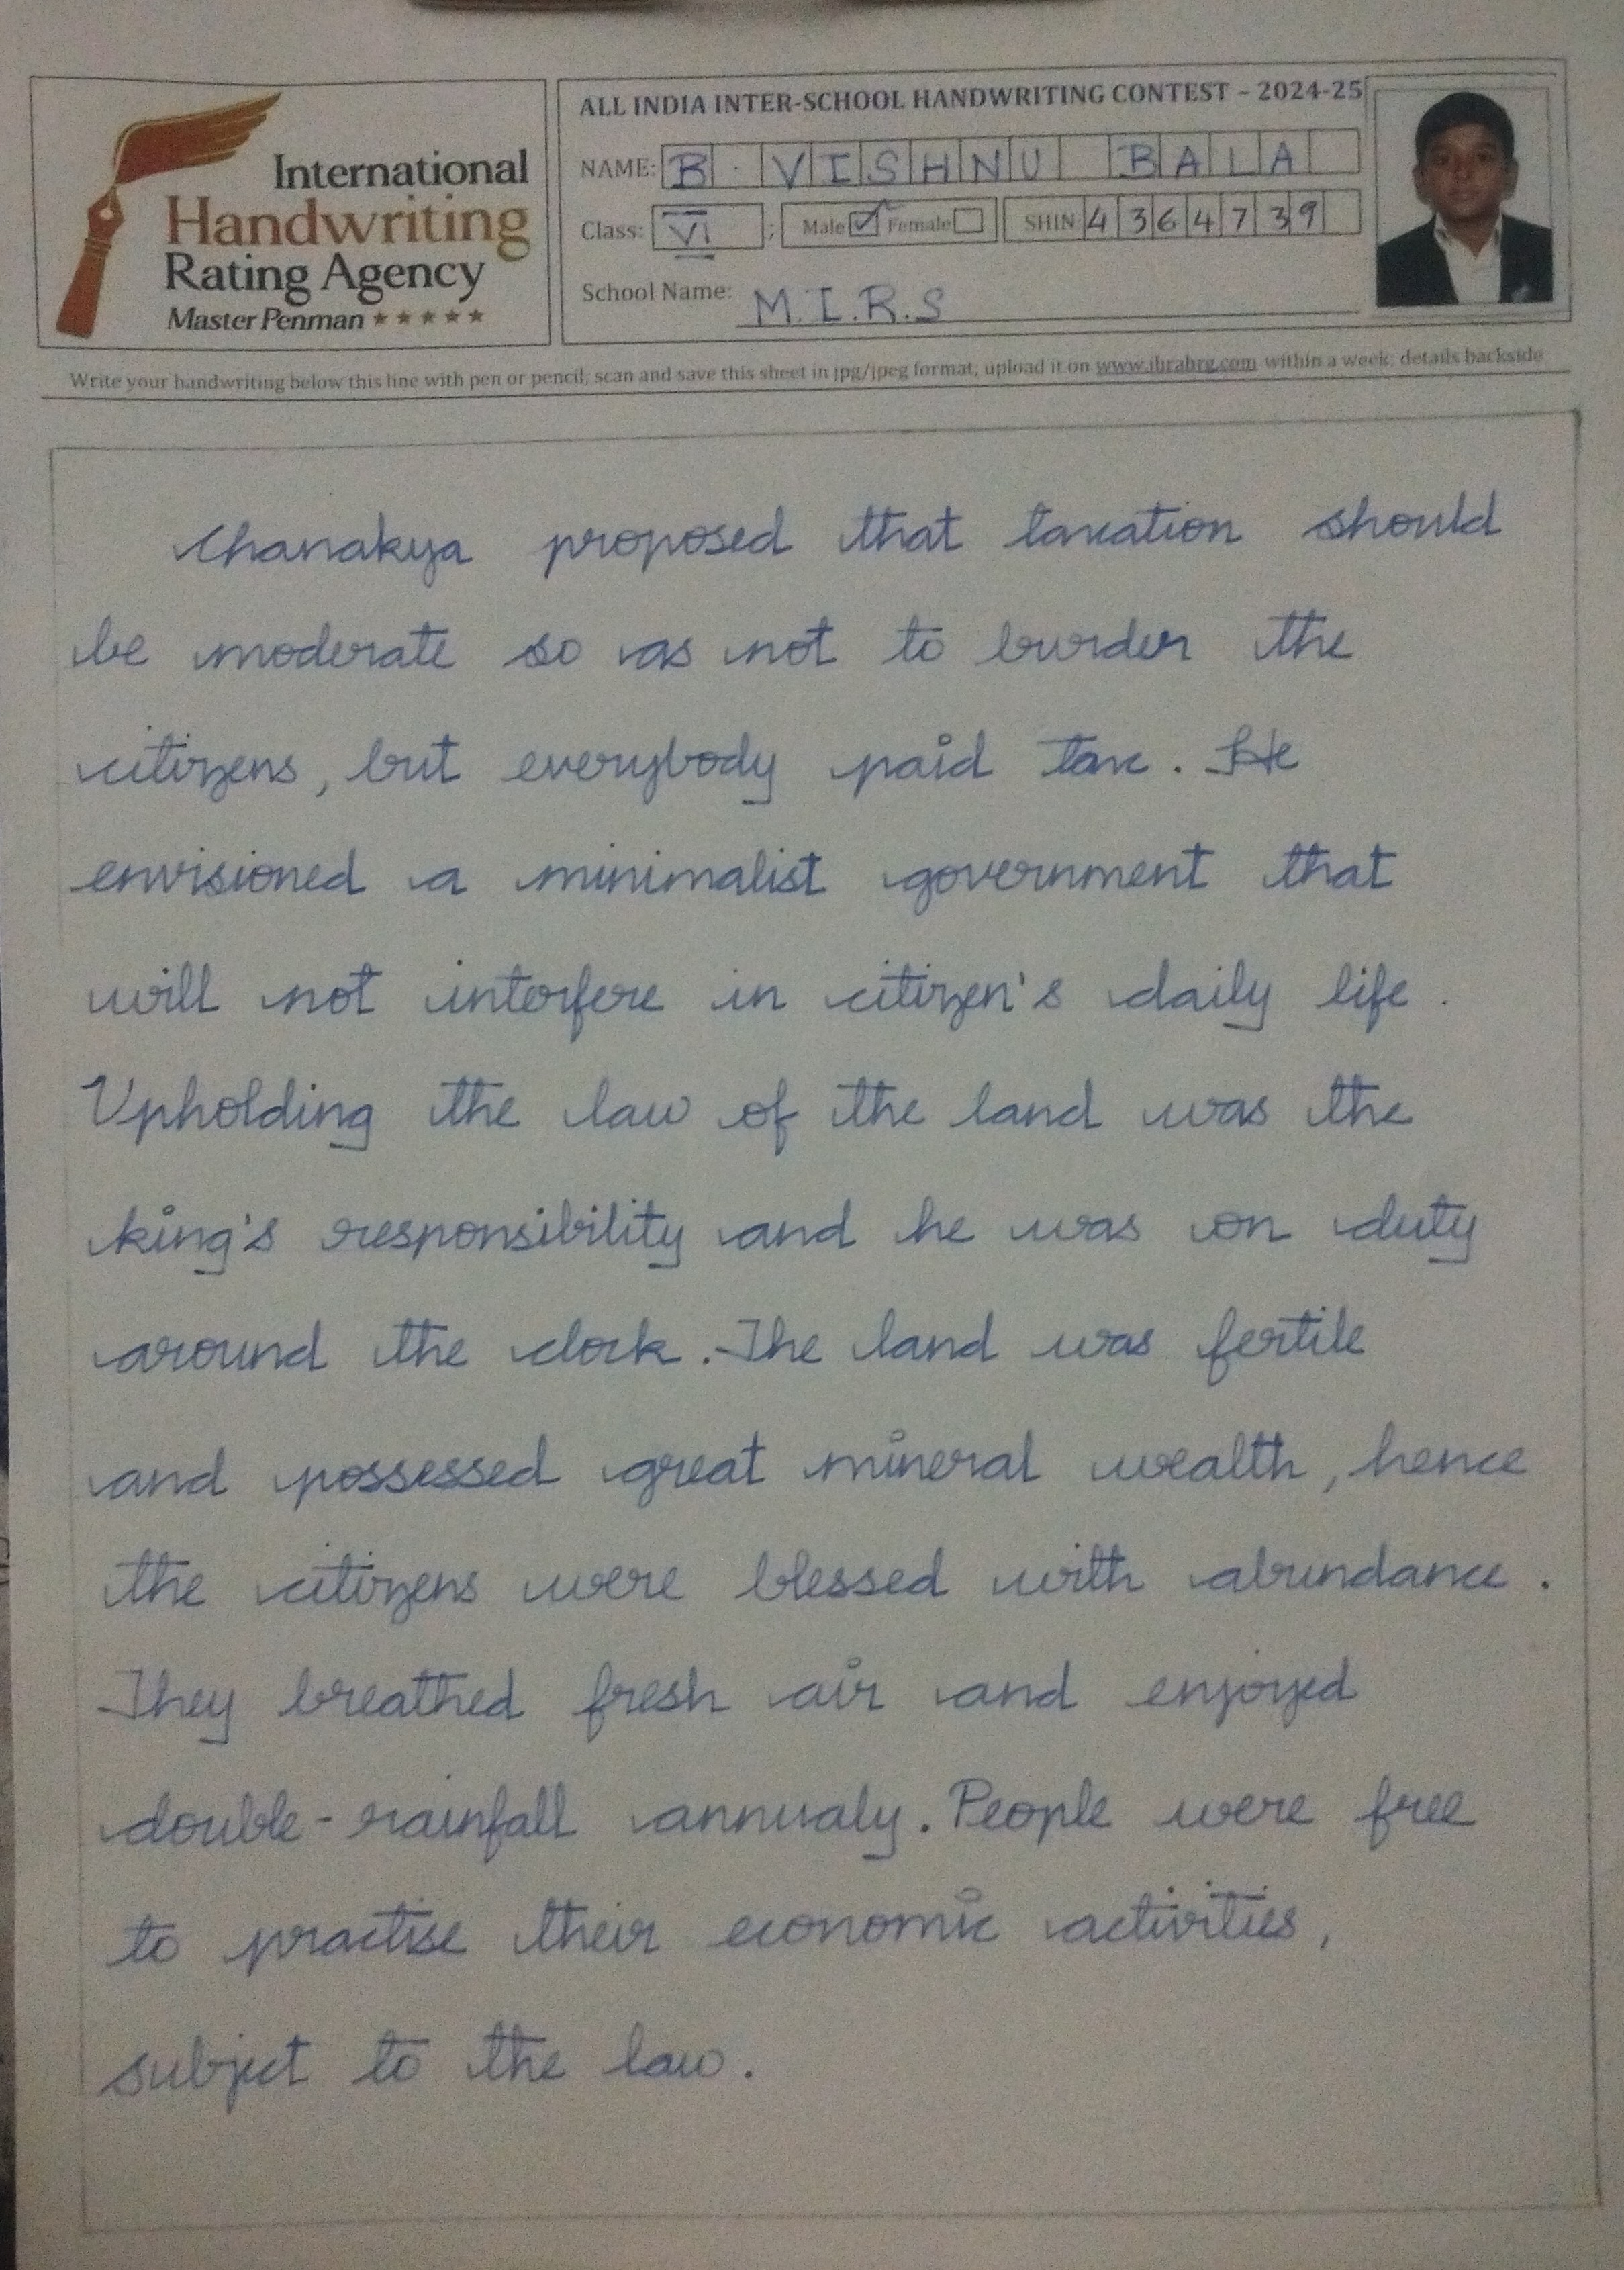 International
Handwriting
Rating Agency
Master Penman
ALL INDIA INTER-SCHOOL HANDWRITING CONTEST - 2024-25
NAME: B. VISHNU BALA
Class: VI ; Male ☑ Female ☐ SHIN: 4364739
School Name: M.I.R.S
Write your handwriting below this line with pen or pencil; scan and save this sheet in jpg/jpeg format; upload it on www.ihrahrg.com within a week; details backside
Chanakya proposed that taxation should
be moderate so as not to burden the
citizens, but everybody paid tax. He
envisioned a minimalist government that
will not interfere in citizen's daily life.
Upholding the law of the land was the
king's responsibility and he was on duty
around the clock. The land was fertile
and possessed great mineral wealth, hence
the citizens were blessed with abundance.
They breathed fresh air and enjoyed
double-rainfall annualy. People were free
to practise their economic activities,
subject to the law.